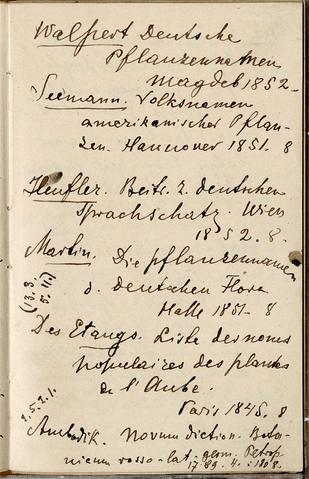 Walpert Deutsche
Pflanzennamen
Magdeb 1852-
Seemann. Volksnamen
amerikanischer Pflan-
zen. Hannover 1851. 8
Heufler. Beitr. z. deutschen
Sprachschatz. Wien
1852. 8.
Martin. Die Pflanzennamen
d. deutschen Flora
Halle 1851- 8
(13. 3.
5. 11.)
Des Etangs. Liste des noms
populaires des plantes
de l'Aube.
Paris 1845. 8
2. 5. 2. 1.
Ambodik. Novum diction. Bota-
nicum rosso-lat-germ. Petrop
1789. 4. : 1808.